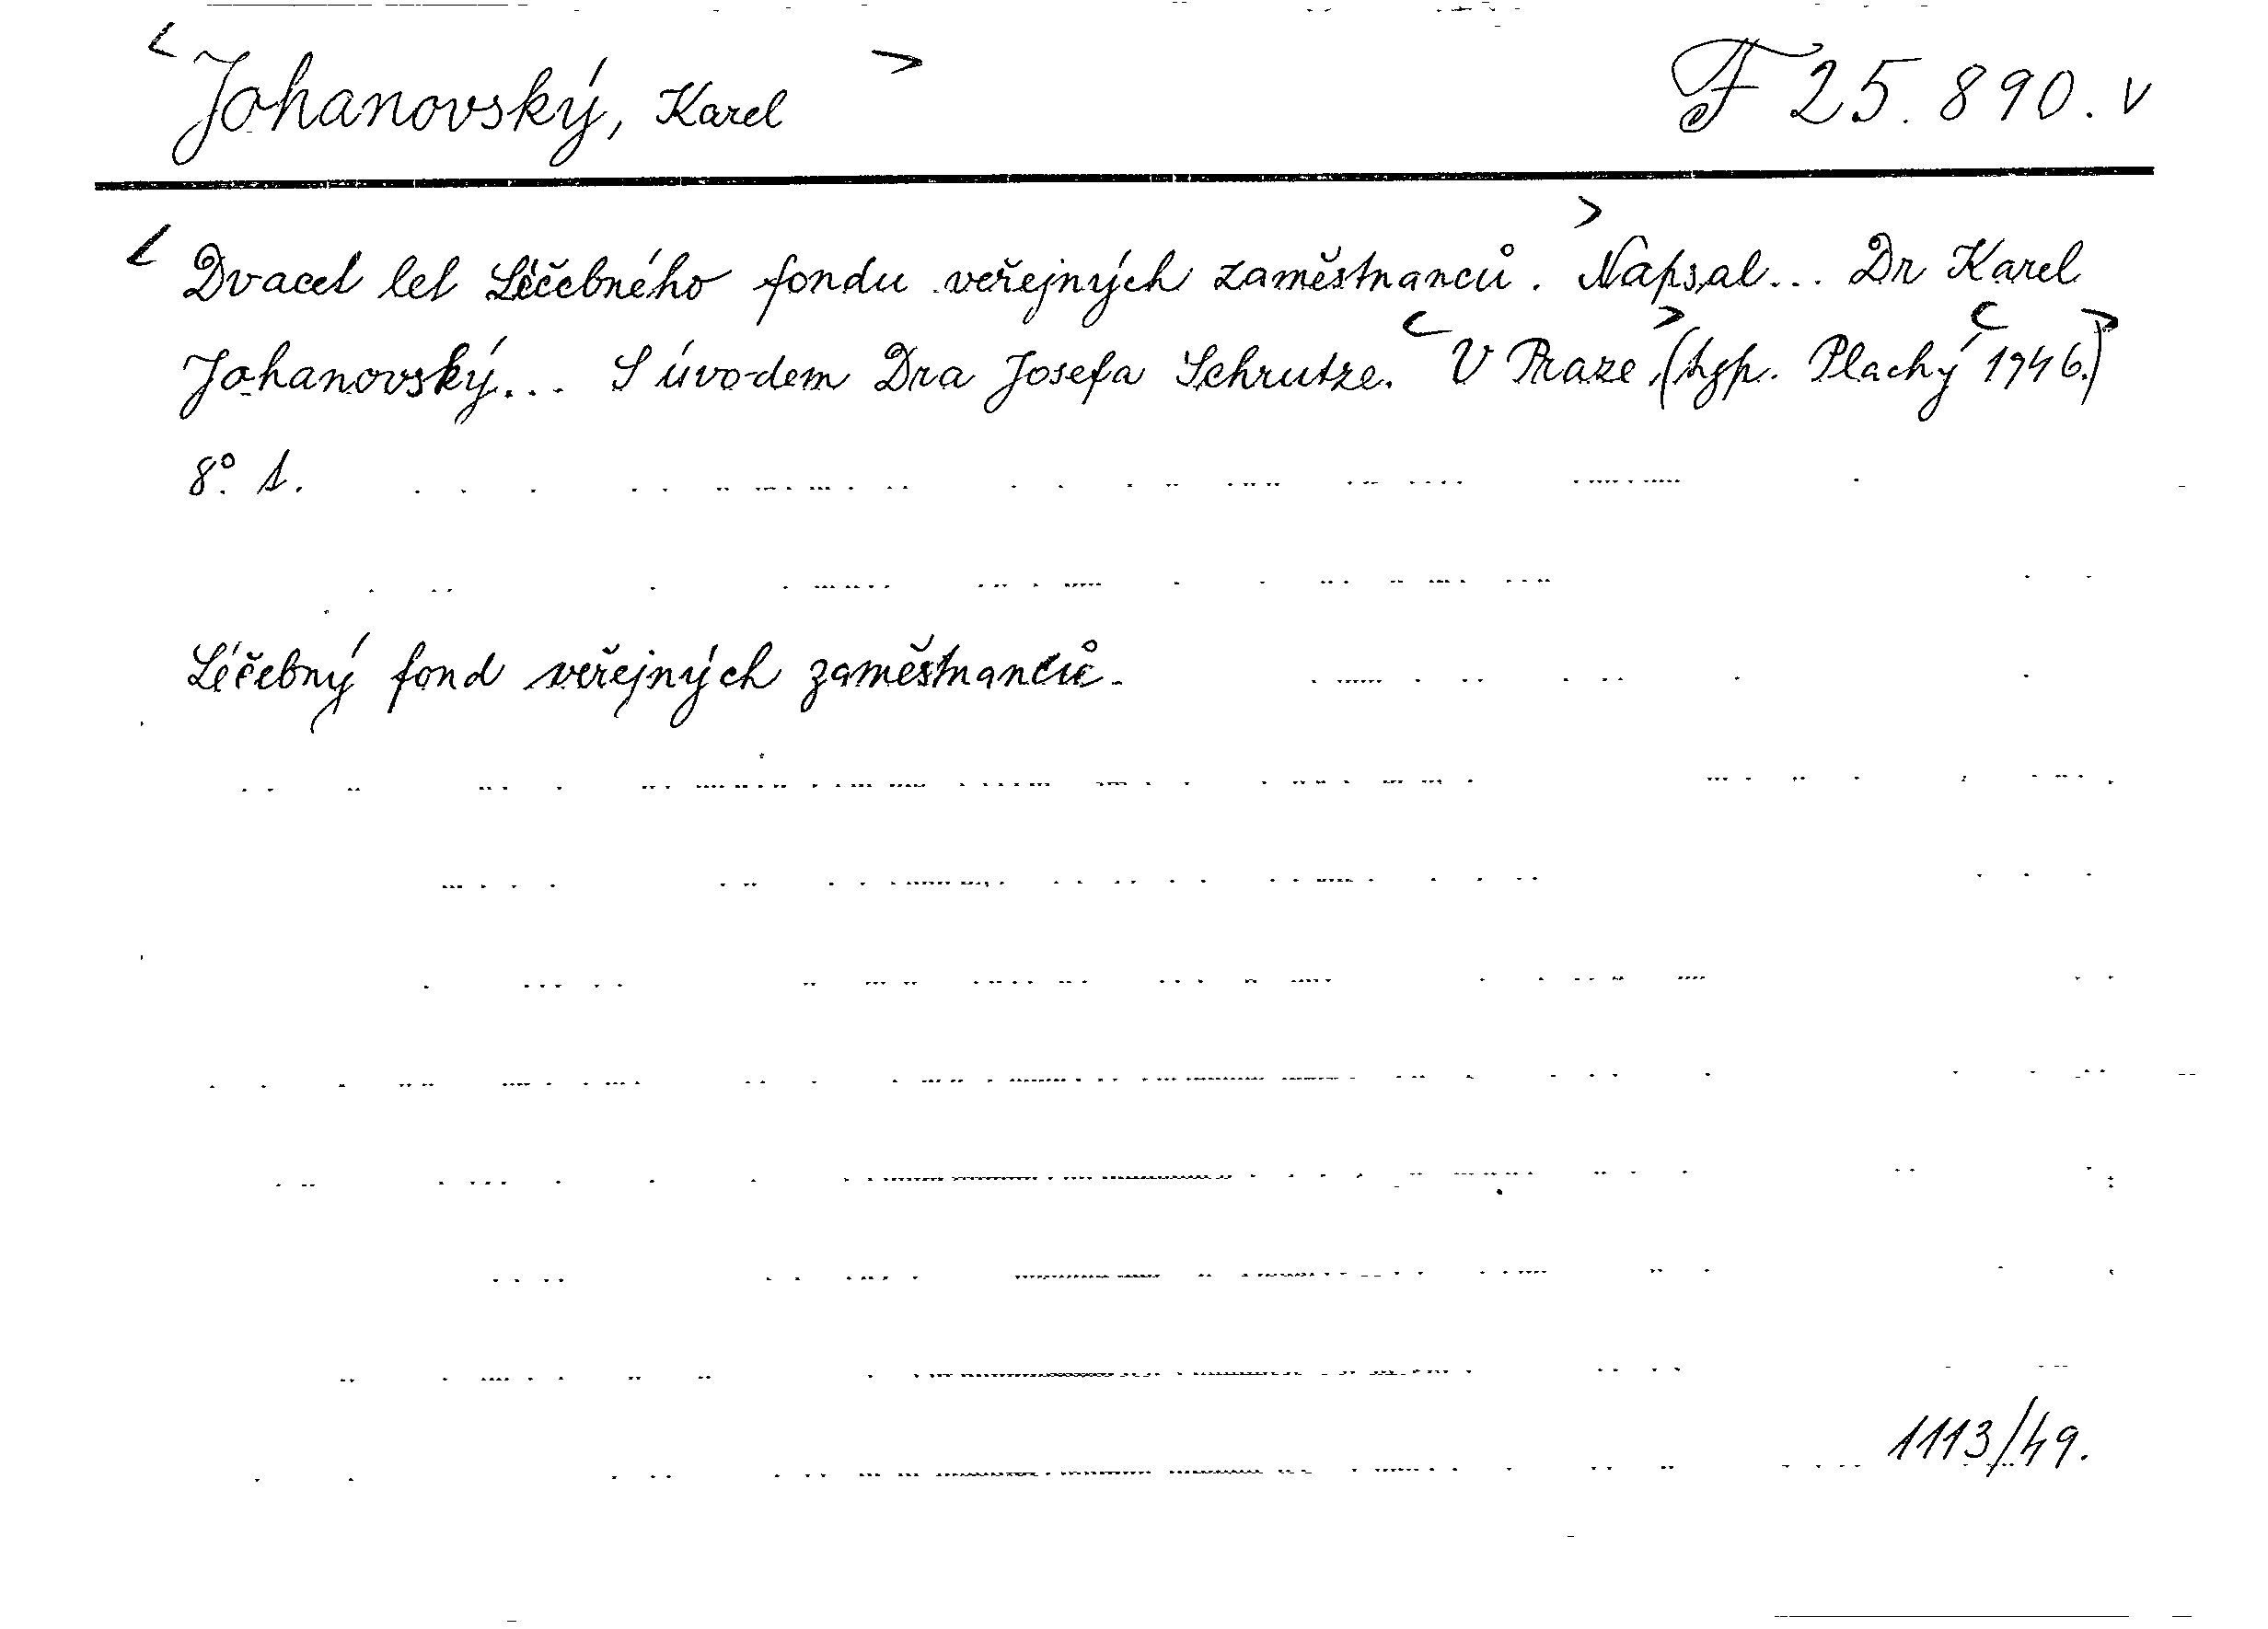 <Johanovský, Karel> F 25.890.v
<Dvacet let Léčebného fondu veřejných zaměstnanců.> Napsal... Dr Karel
Johanovský... S úvodem Dra Josefa Schrutze. <V Praze,> (typ. Plachý <1946.)>
8°. 1.
Léčebný fond veřejných zaměstnanců.
1113/49.